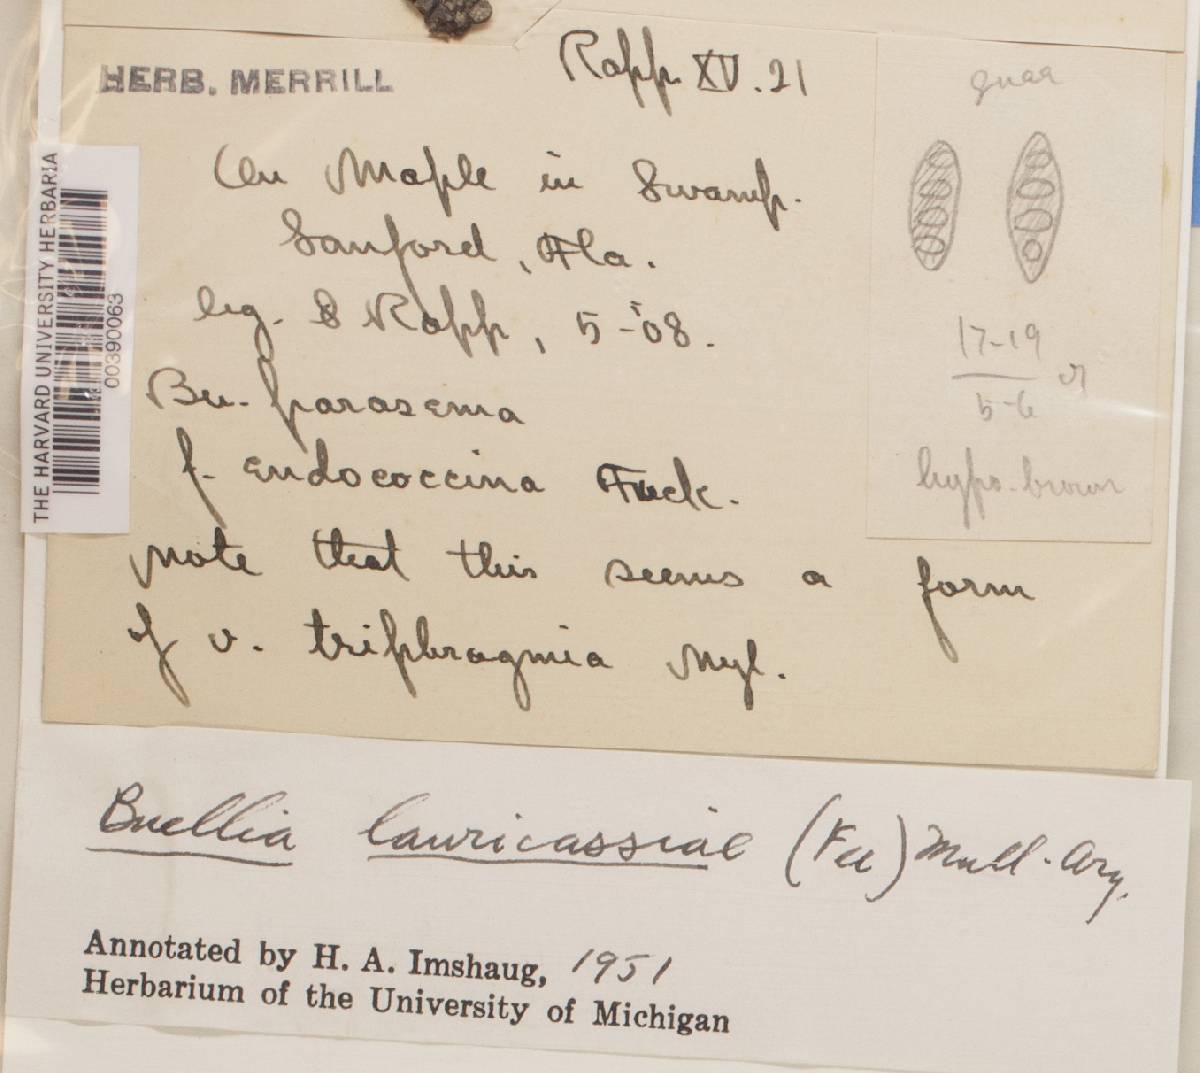 HERB. MERRILL
Rapp XV.21
On Maple in Swamp.
Sanford, Fla.
leg. S Rapp, 5-'08.
Bu. parasema
f. endococcina Fuck.
note that this seems a form
of v. triphragmia Nyl.
17-19
5-6
hypo. brown
THE HARVARD UNIVERSITY HERBARIA
00390063
Buellia lauricassiae (Fee) Mull. Arg.
Annotated by H. A. Imshaug, 1951
Herbarium of the University of Michigan